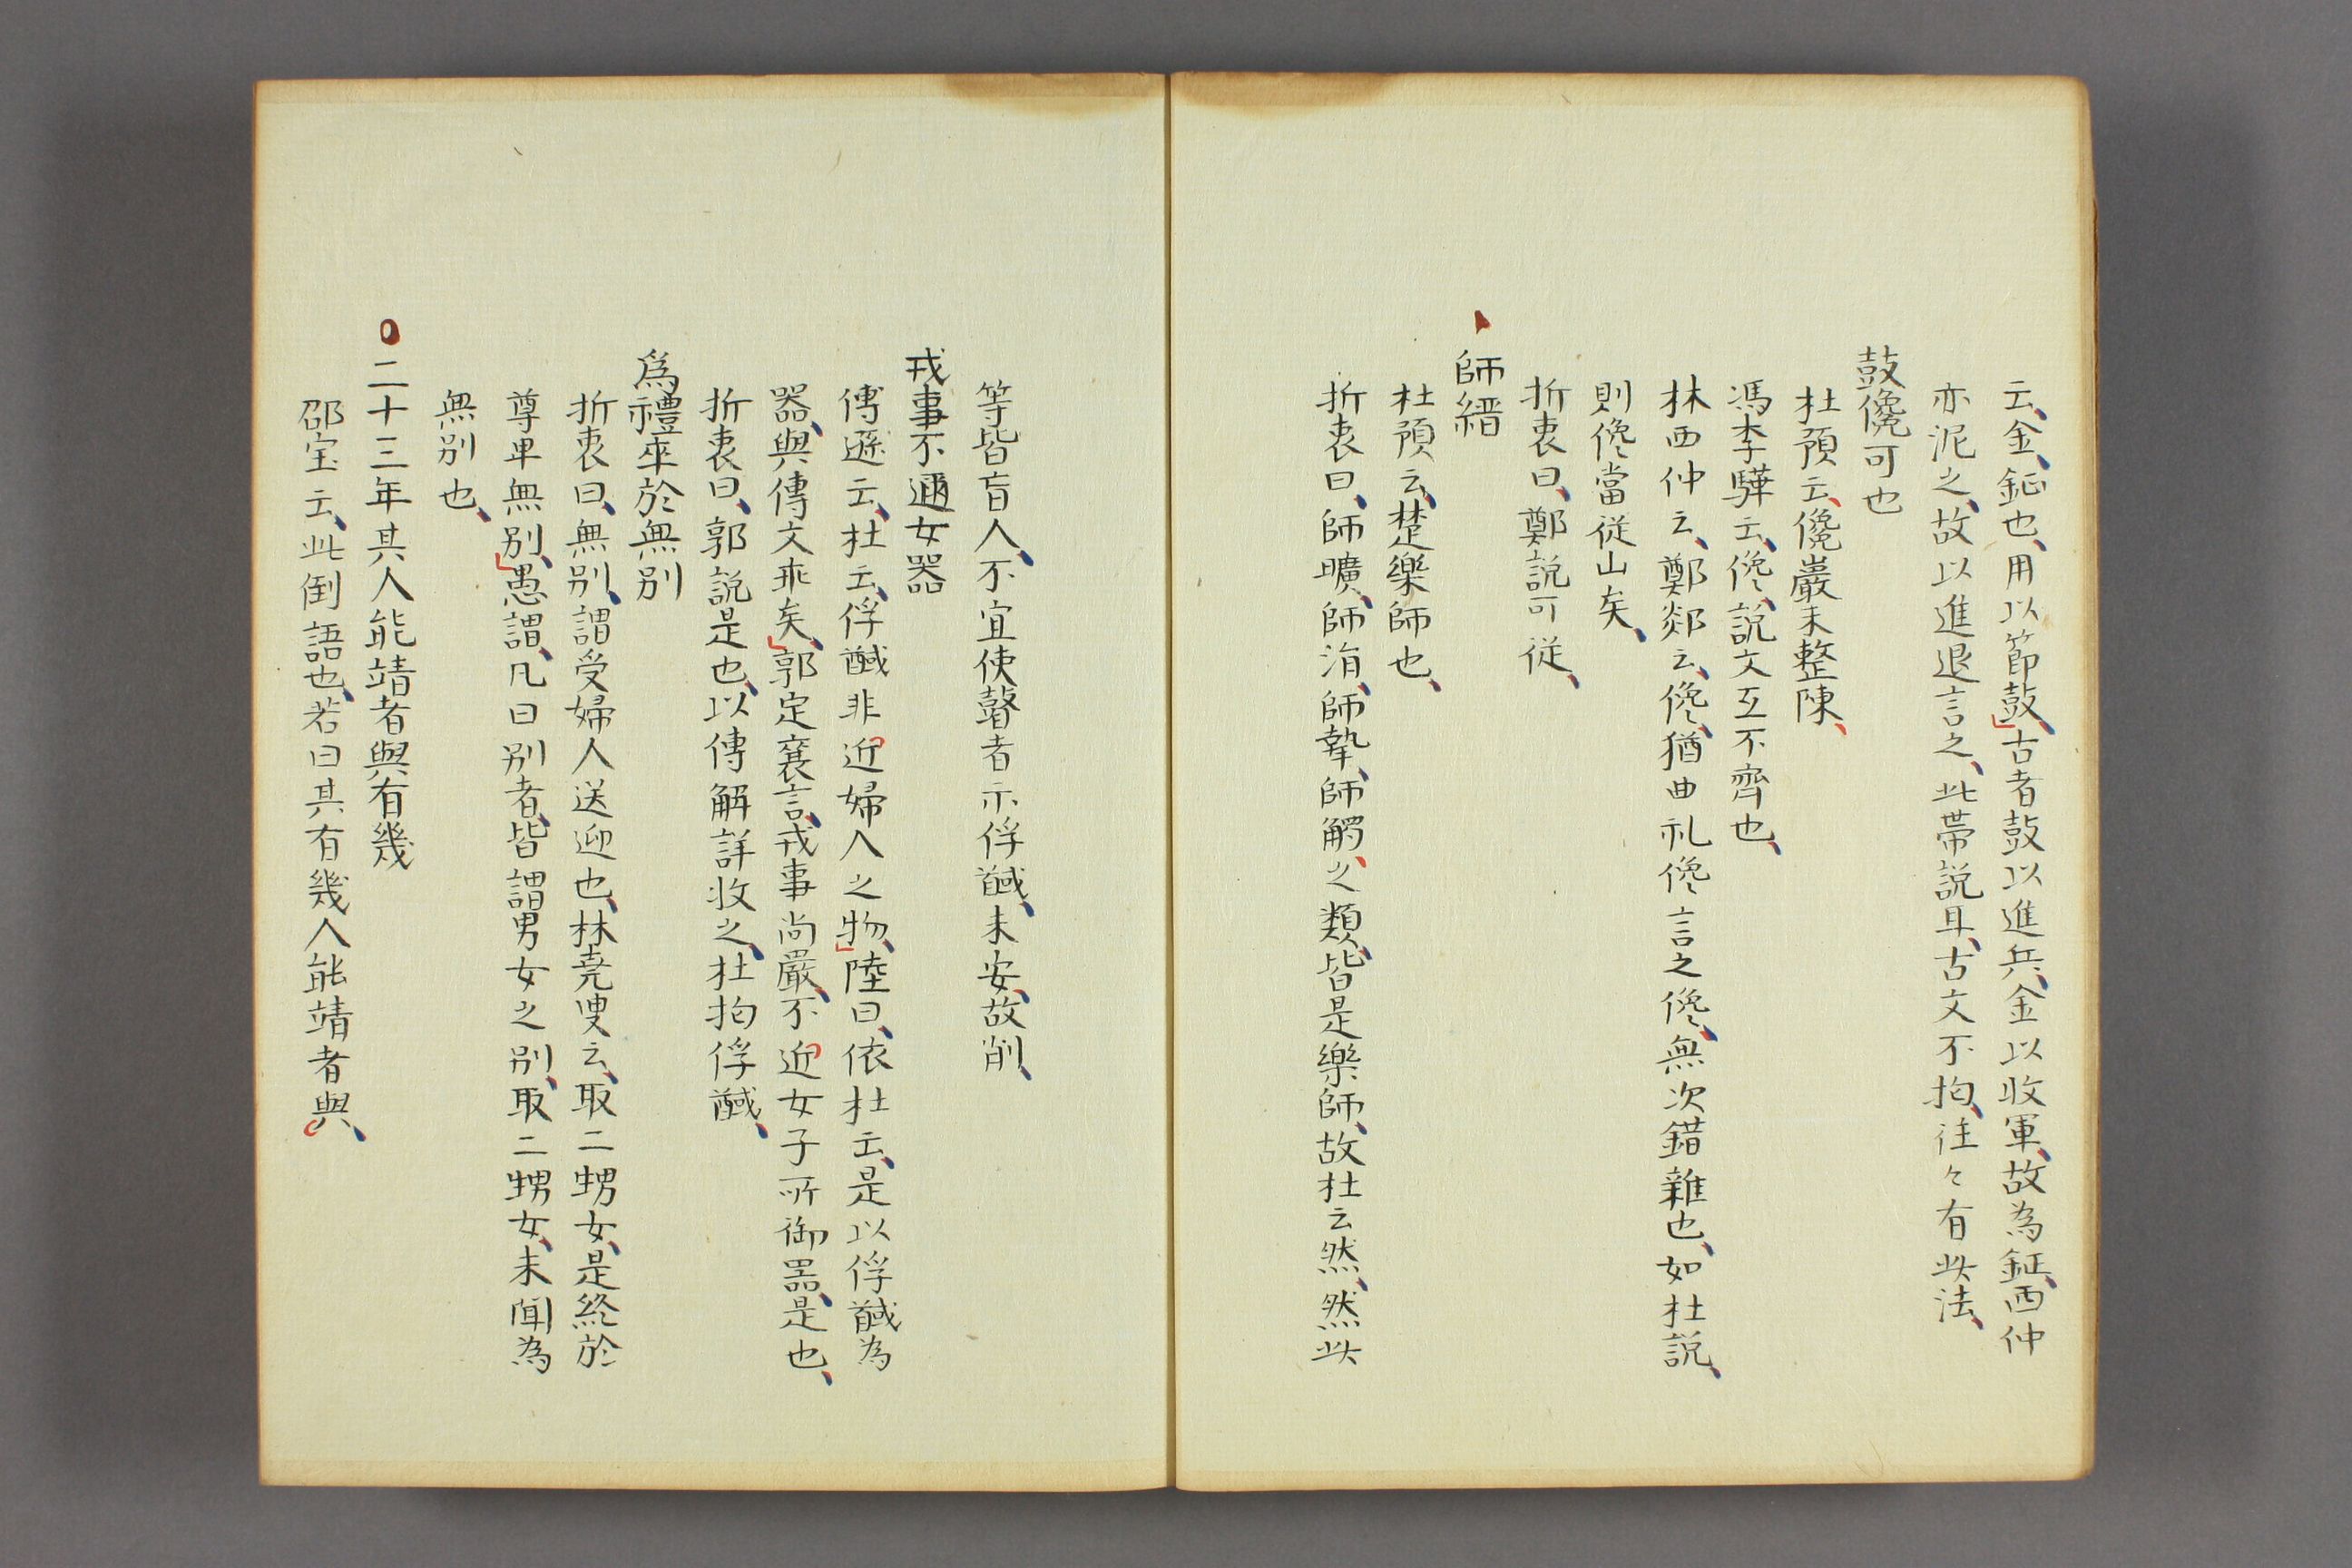 云、金、鉦也、用以節鼓、」古者鼓以進兵、金以收軍、故為鉦、西仲
亦泥之、故以進退言之、此帯説耳、古文不拘、往々有此法、
鼓儳可也
杜預云、儳巖未整陳、
馮李驊云、儳、説文互不齊也、
林西仲云、鄭郯云、儳、猶曲礼儳言之儳、無次錯雜也、如杜説、
則儳當従山矣、
折衷曰、鄭説可従、
師縉
杜預云、楚樂師也、
折衷曰、師曠、師涓、師摯、師觸、之類、皆是樂師、故杜云然、然此
等皆盲人、不宜使瞽者示俘馘、未安、故削、
戎事不邇女器
傅遜云、杜云、俘馘非近婦人之物、」陸曰、依杜云、是以俘馘為
器、與傳文乖矣、」郭定襄言、戎事尚嚴、不近女子所御器、是也、
折衷曰、郭説是也、以傳解詳收之、杜拘俘馘、
爲禮卒於無别
折衷曰、無别、謂受婦人送迎也、林堯叟云、取二甥女、是終於
尊卑無别、」愚謂、凡曰别者、皆謂男女之别、取二甥女、未聞為
無别也、
二十三年其人能靖者與有幾
邵宝云、此倒語也、若曰其有幾人能靖者與、